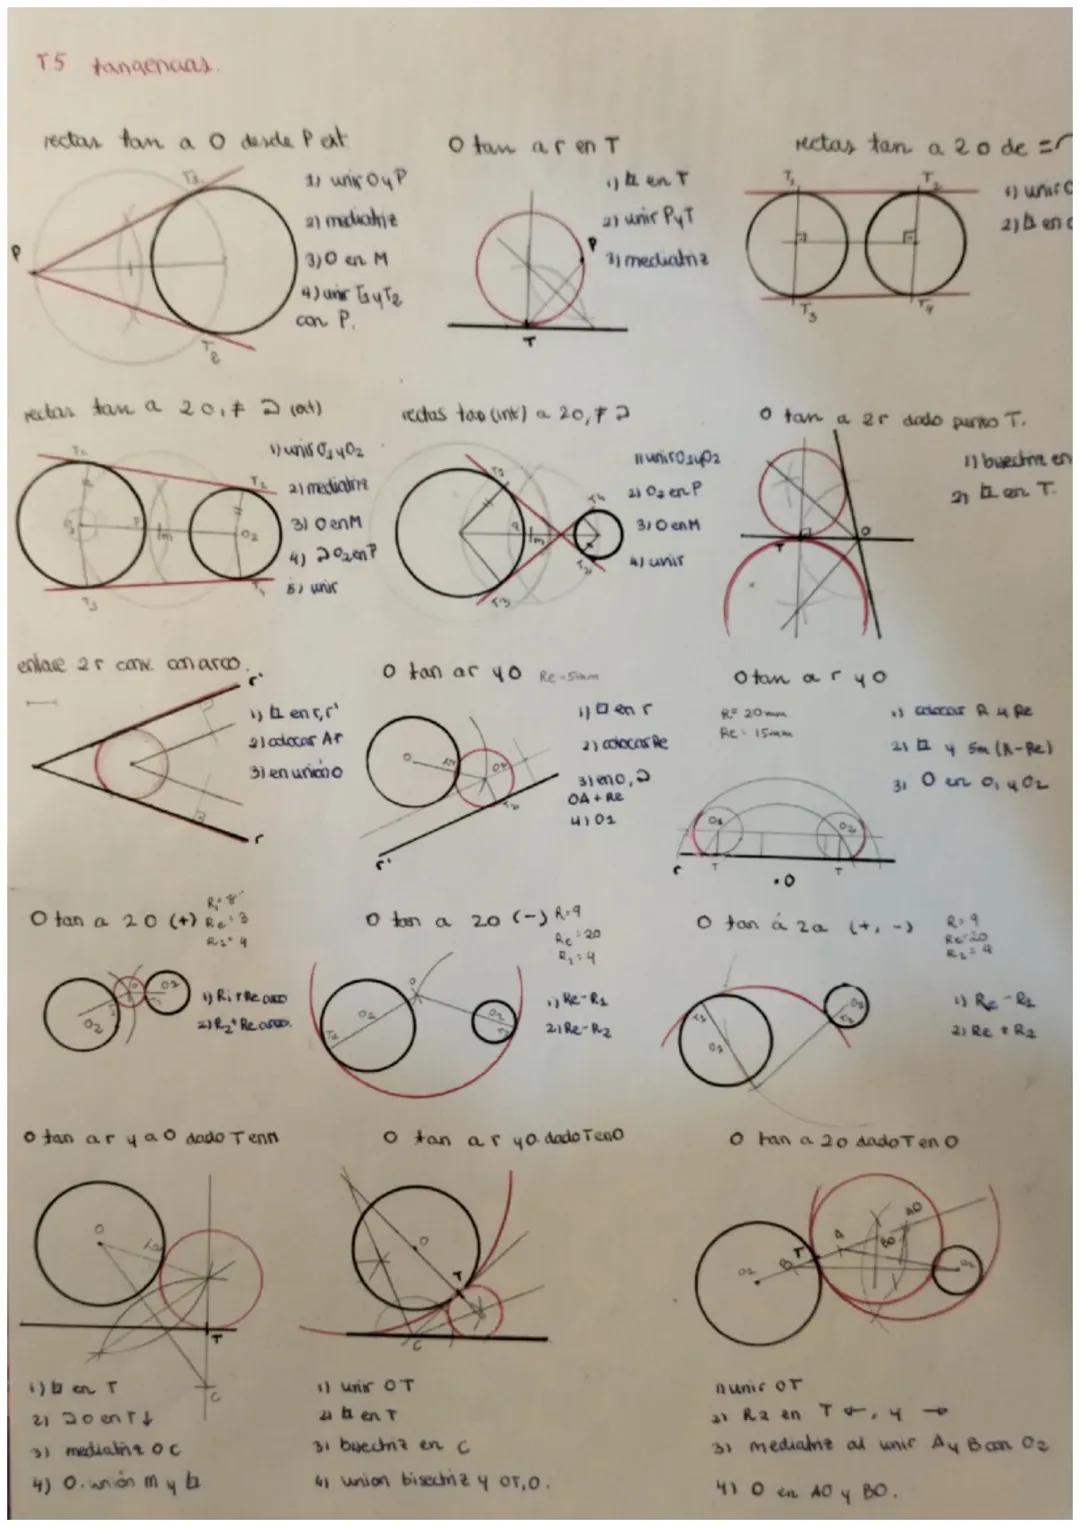 T5 tangencias.
rectas tan a O desde P ext
1) unir O y P
2) mediatriz
3) O en M
4) unir T1 y T2
con P.
P
T1
T2
O tan a r en T
1) ⊥ en T
2) unir P y T
3) mediatriz
P
T
rectas tan a 2 o de = r
1) unir O
2) ⊥ en
T1
T2
T3
T4
rectas tan a 2 o, ≠ ⊃ (ext)
1) unir O1 y O2
2) mediatriz
3) O en M
4) ⊃ O2 en P
5) unir
rectas tan (int) a 2 o, ≠ ⊃
1) unir O1 y O2
2) O2 en P
3) O en M
4) unir
O tan a 2 r dado punto T.
1) bisectriz en
2) ⊥ en T.
enlace 2 r conv. con arco.
1) ⊥ en r, r'
2) colocar Ar
3) en unión O
r'
r
O tan a r y O Re = 5mm
1) ⊥ en r
2) colocar Re
3) en O, ⊃
OA + Re
4) O1
r'
O tan a r y O
R = 20 mm
Re = 15mm
1) colocar R y Re
2) ⊥ y sm (R-Re)
3) O en O1 y O2
r
T
.O
T
O tan a 2 O (+)
R1 = 8
Re = 3
R2 = 4
1) R1 + Re arco
2) R2 + Re arco.
O tan a 2 O (-)
R = 9
Re = 20
R2 = 4
1) Re - R1
2) Re - R2
O tan a 2 a (+, -)
R = 9
Re = 20
R2 = 4
1) Re - R1
2) Re + R2
O tan a r y a O dado T en r
O
T
C
1) ⊥ en T
2) ⊃ O en T ↓
3) mediatriz O C
4) O. unión m y ⊥
O tan a r y o. dado T en O
O
T
C
1) unir OT
2) ⊥ en T
3) bisectriz en C
4) union bisectriz y OT, O.
O tan a 2 O dado T en O
O1
B
T
A
BO
AO
O2
1) unir OT
2) R2 en T ←, y →
3) mediatriz al unir A y B con O2
4) O en AO y BO.